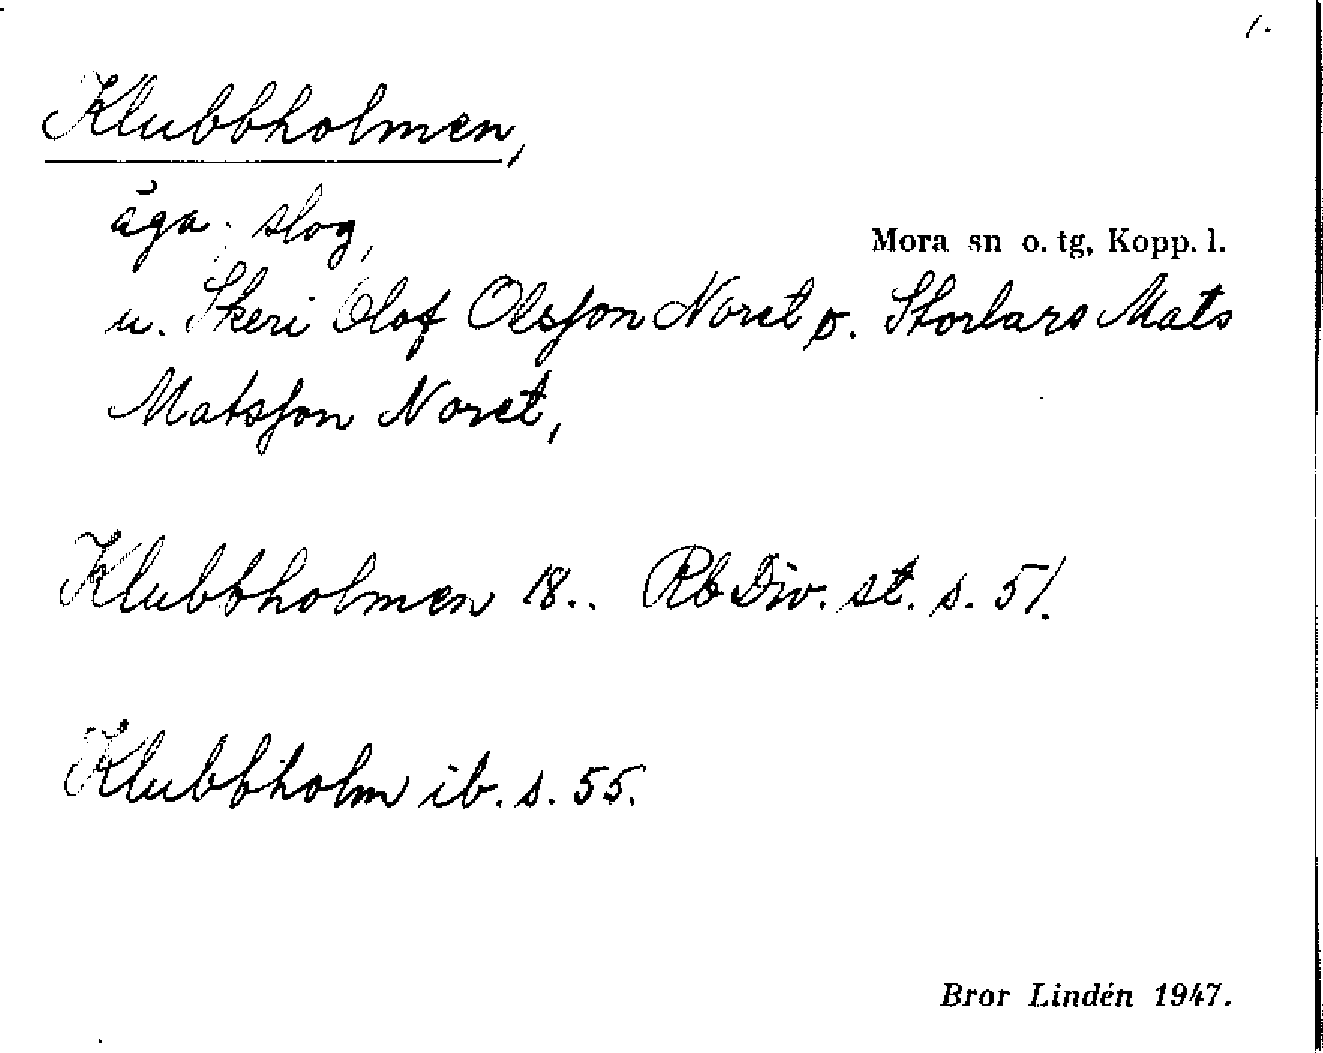 1.
Klubbholmen,
äga; slog,
Mora sn o. tg, Kopp. l.
u. Skeri Olof Olsson Noret o. Storlars Mats
Matsson Noret,
Klubbholmen 18.. Rb Div. st. s. 51.
Klubbholm ib. s. 55.
Bror Lindén 1947.